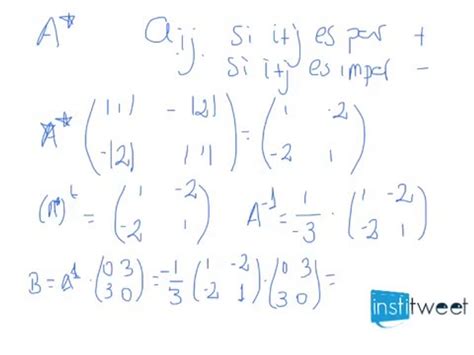 A* aij. si i+j es par +
si i+j es impar -
A* ( |1| -|2| ; -|2| |1| ) = ( 1 -2 ; -2 1 )
(A*)^t = ( 1 -2 ; -2 1 ) A^-1 = 1/-3 · ( 1 -2 ; -2 1 )
B = A^-1 · ( 0 3 ; 3 0 ) = -1/3 ( 1 -2 ; -2 1 ) · ( 0 3 ; 3 0 ) =
institweet